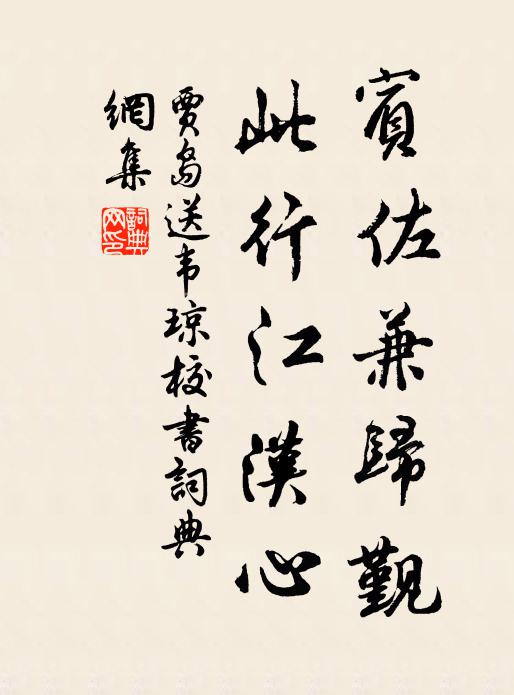 賓佐兼歸覲
此行江漢心
賈島送韦琼校書詞典
網集
詞典
网印